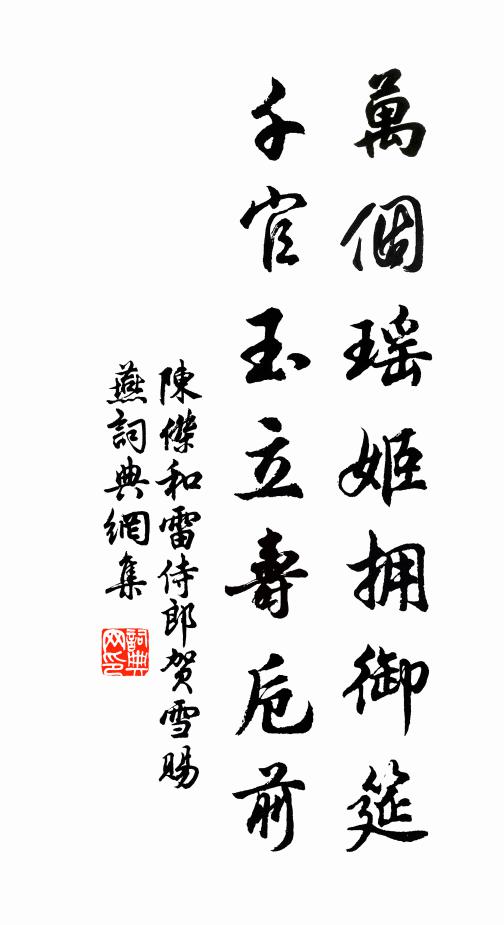 萬個瑶姬拥御筵
千官玉立壽卮前
陳傑和雷侍郎贺雪賜
燕詞典網集
詞典
网印